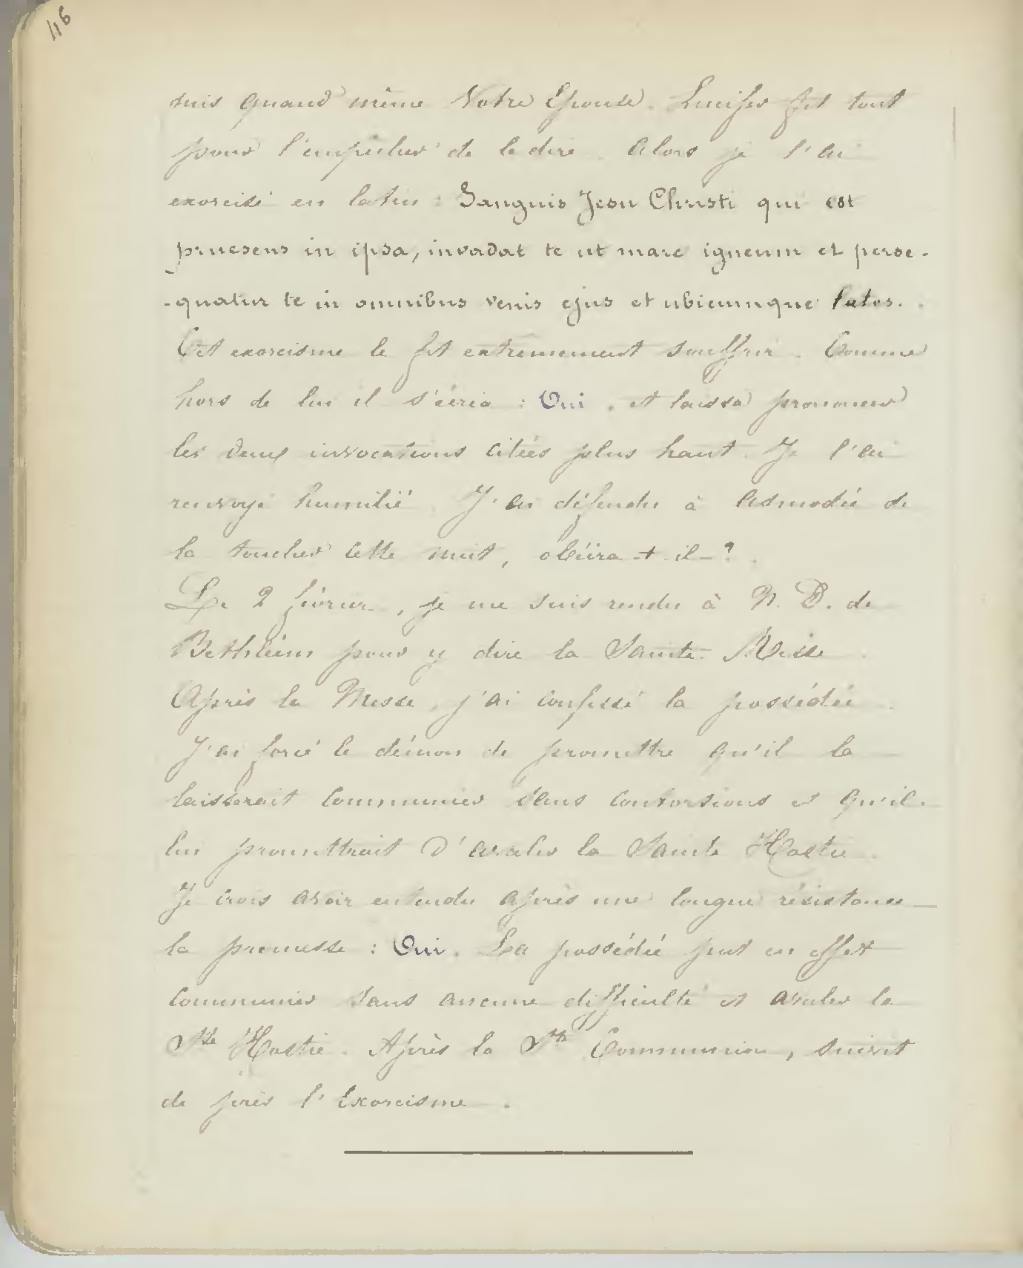 116
suis quand même Votre Epouse. Lucifer fit tout
pour l'empêcher de le dire. Alors je l'ai
exorcisé en latin : Sanguis Jesu Christi qui est
praesens in ipsa, invadat te ut mare igneum et perse-
-quatur te in omnibus venis ejus et ubicumque lates.
Cet exorcisme le fit extrêmement souffrir. Comme
hors de lui il s'écria : Oui. et laissa prononcer
les deux invocations citées plus haut. Je l'ai
renvoyé humilié. J'ai défendu à Asmodée de
la toucher cette nuit, obéira-t-il-?
Le 2 février, je me suis rendu à N. D. de
Bethléem pour y dire la Sainte Messe.
Après la Messe, j'ai confessé la possédée.
J'ai forcé le démon de promettre qu'il la
laisserait communier sans contorsions et qu'il
lui promettrait d'avaler la Sainte Hostie.
Je crois avoir entendu après une longue résistance
la promesse : Oui. La possédée put en effet
communier sans aucune difficulté et avaler la
Ste Hostie. Après la Ste Communion, suivit
de près l'Exorcisme.